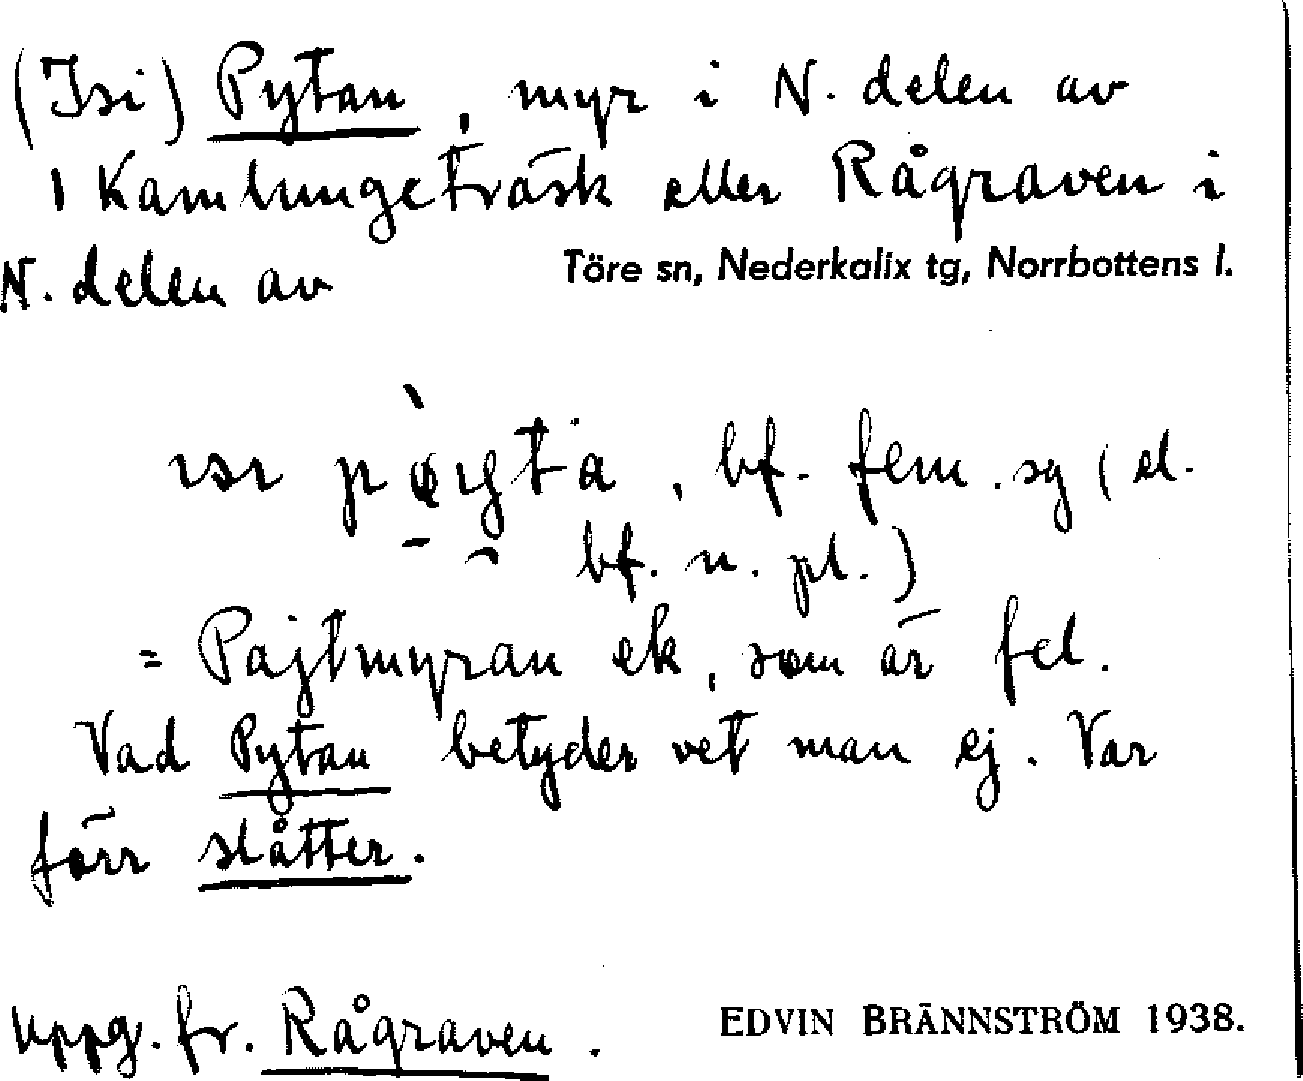 (Isi) Pytan, myr i N. delen av
1 Kamlungeträsk eller Rågraven i
N. delen av Töre sn, Nederkalix tg, Norrbottens l.
bf. fem. sg (el.
bf. n. pl.)
= Pajtmyran ek, som är fel.
Vad Pytan betyder vet man ej. Var
förr slåtter.
Uppg. fr. Rågraven. EDVIN BRÄNNSTRÖM 1938.